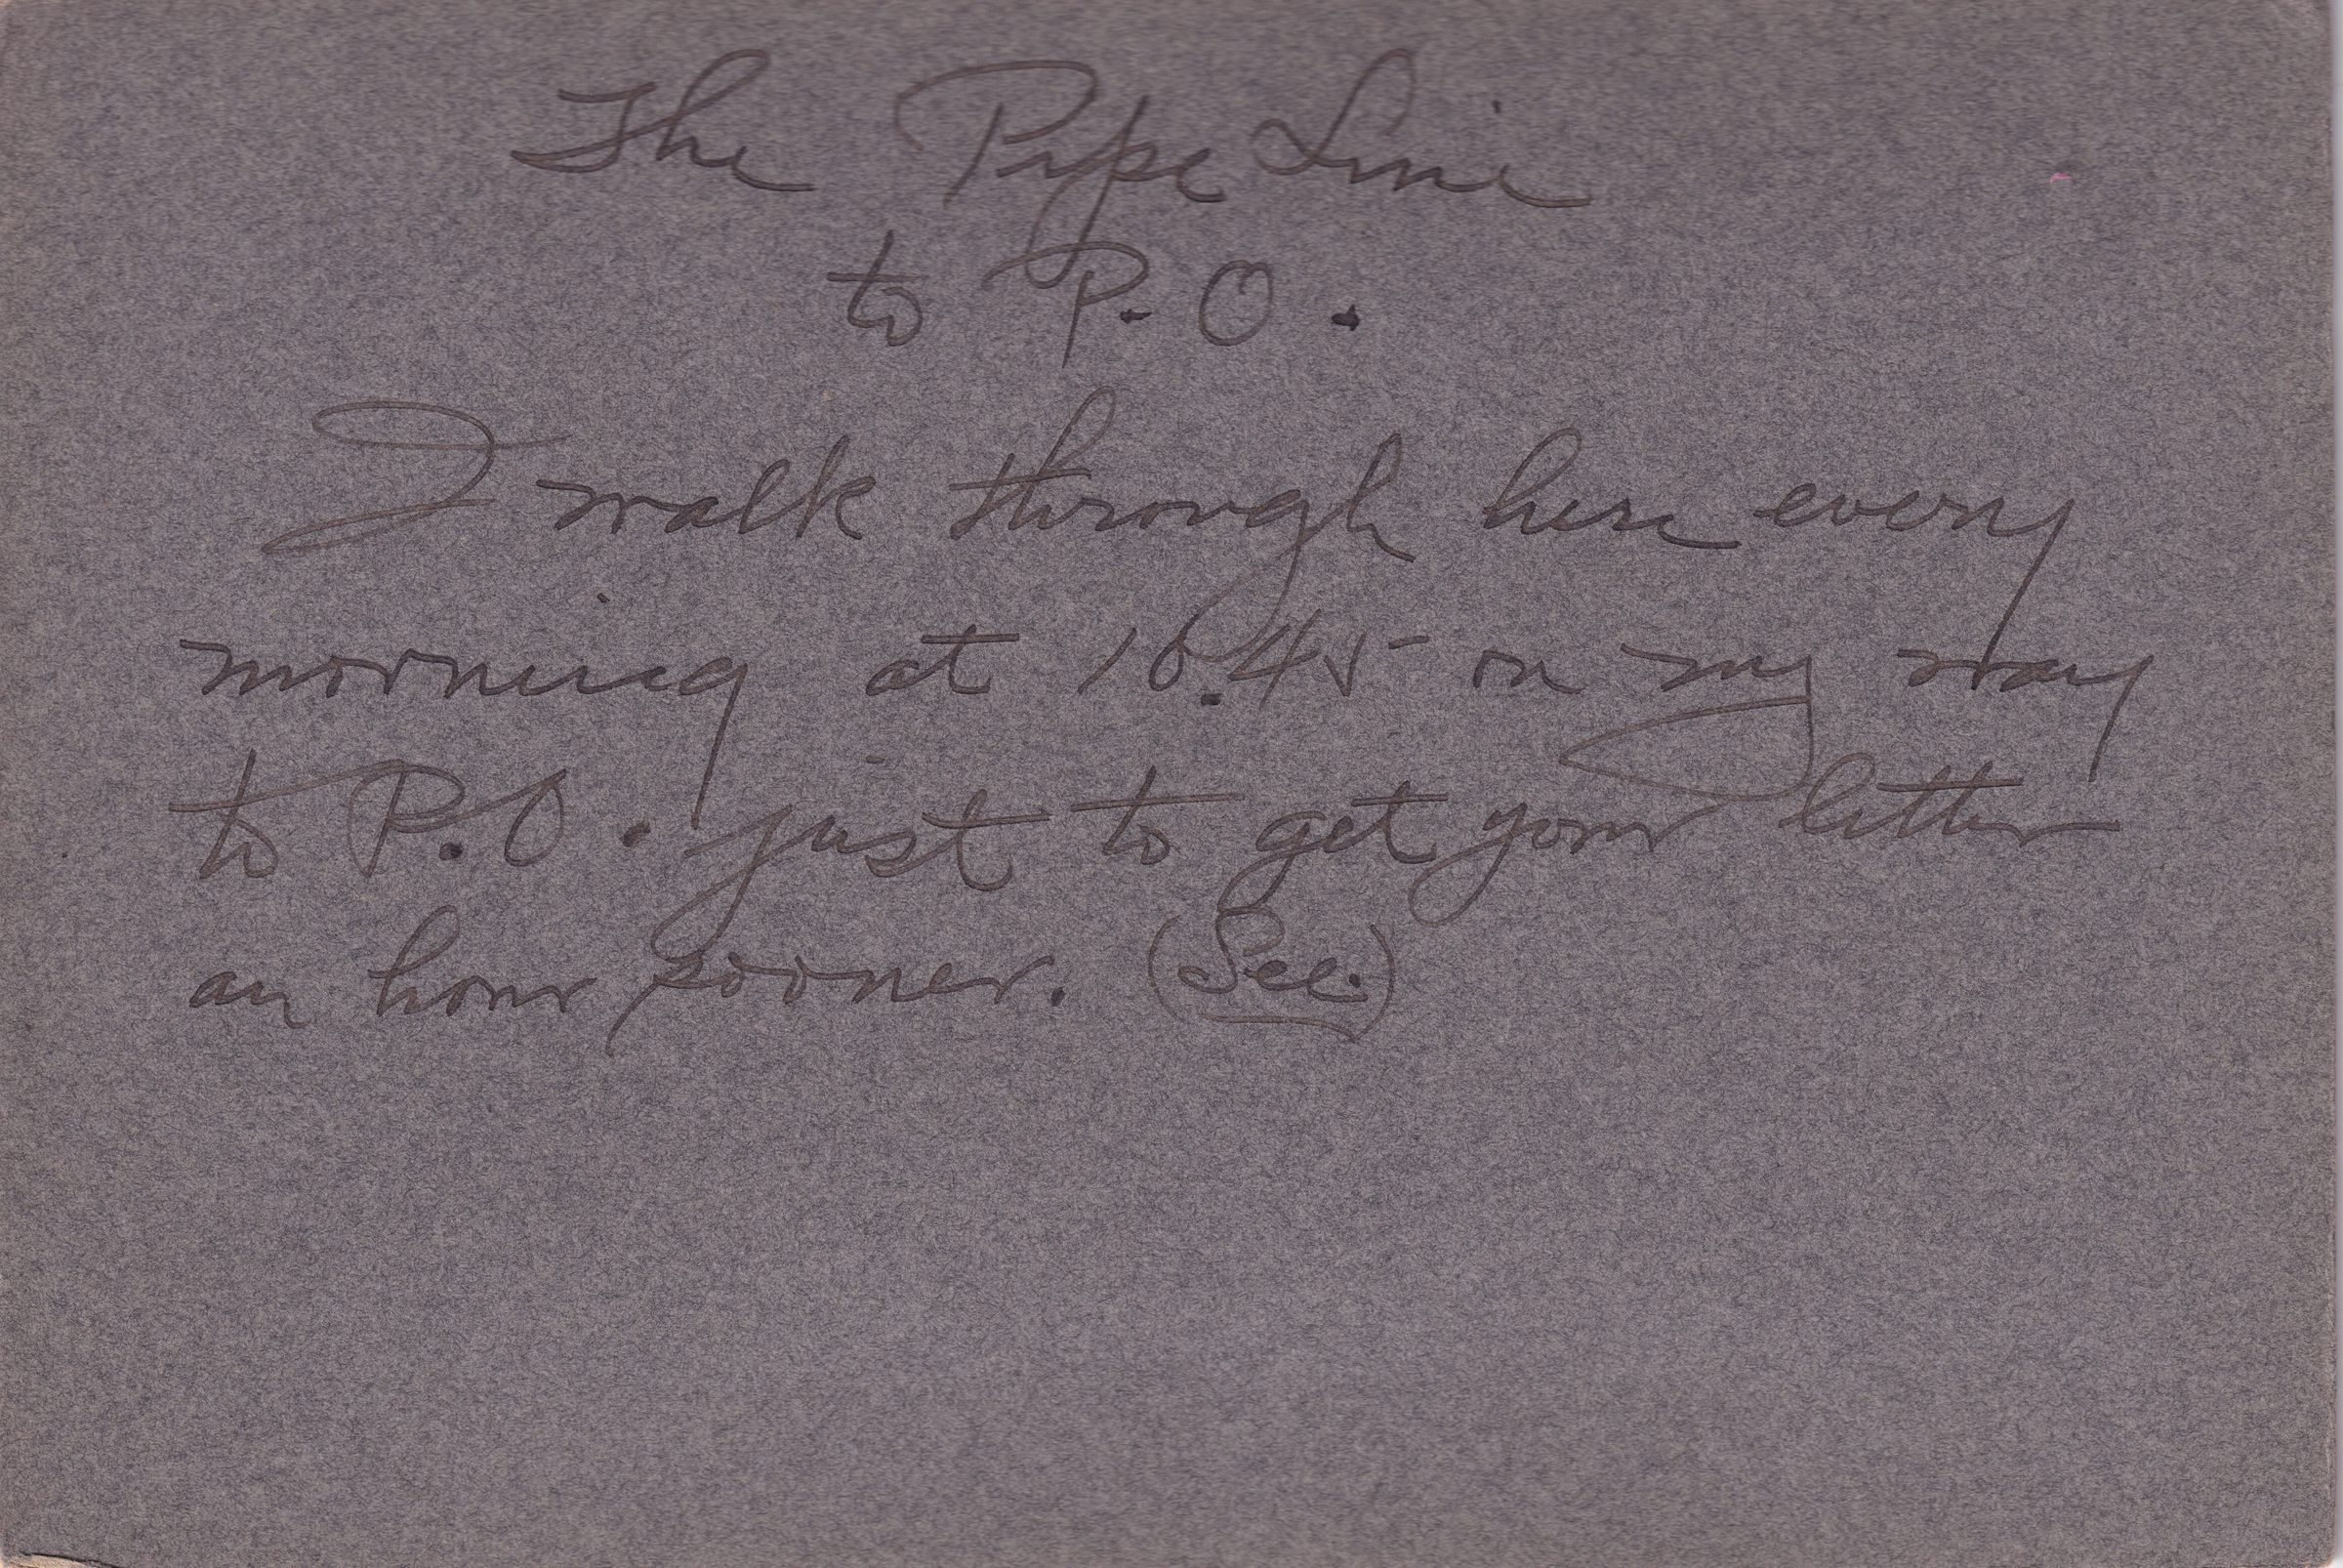 The Pipe Line
to P. O.
I walk through here every
morning at 10.45 on my way
to P.O. just to get your letter
an hour sooner. (See.)